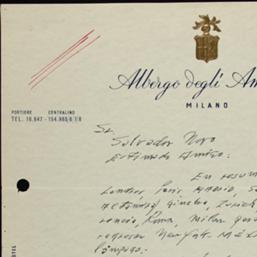 Albergo degli Am
MILANO
PORTIERE CENTRALINO
TEL. 16.847 - 154.985/6/7/8
Sr.
Salvador Novo
Estimado Amigo:
En resum
Londres Paris Madrid, S
Ginebra, Zurich
Roma, Milan
regreso New York - Méx